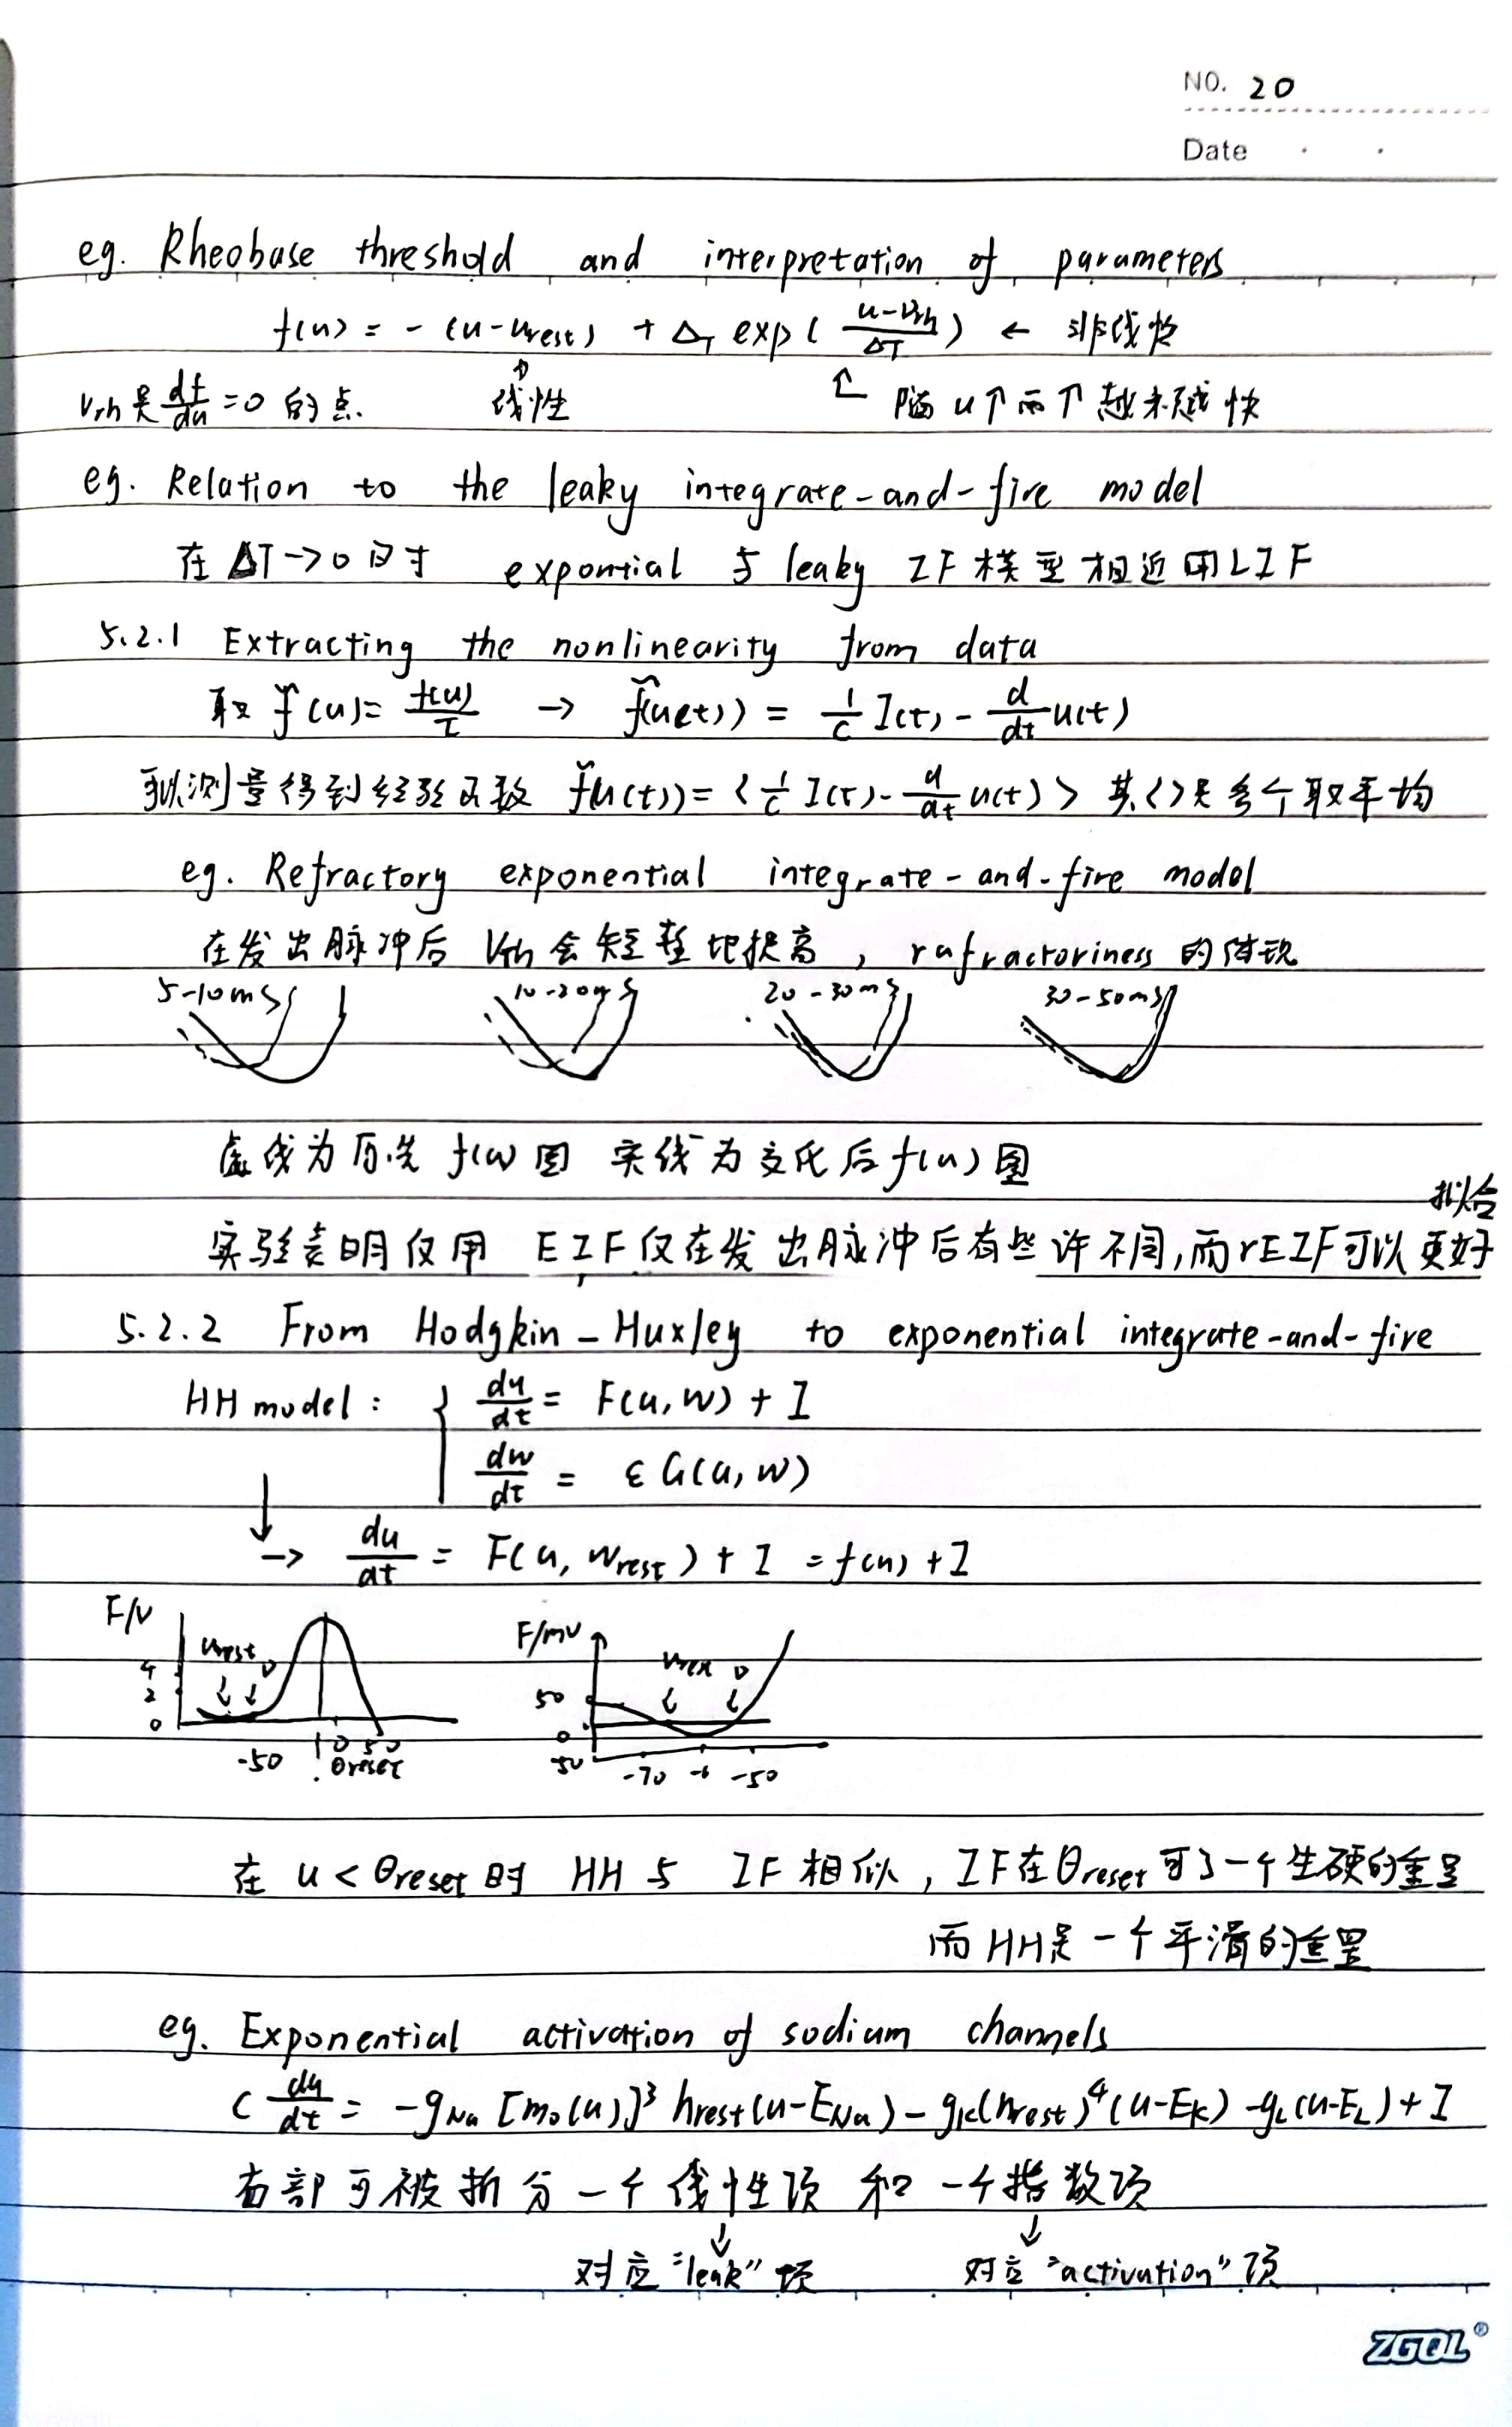 NO. 20
Date
eg. Rheobase threshold and interpretation of parameters
f(u) = - (u-urest) + ΔT exp( (u-vrh)/ΔT ) ← 非线性
Vrh是 df/du =0 的点. 线性 随u个而个越来越快
eg. Relation to the leaky integrate-and-fire model
在 ΔT→0时 expontial 与 leaky IF模型相近用LIF
5.2.1 Extracting the nonlinearity from data
取 f̃(u)= f(u)/τ → f̃(u(t)) = 1/c I(t) - d/dt u(t)
可以测量得到经验函数 f̃(u(t))=< 1/c I(t)- d/dt u(t) > 其<>是多个取平均
eg. Refractory exponential integrate-and-fire model
在发出脉冲后 Vrh会短暂地提高, rafractoriness 的体现
5-10ms 10-20ms 20-30ms 30-50ms
虚线为原先 f(u)图 实线为变化后f(u)图
拟合
实验表明仅用 EIF仅在发出脉冲后有些许不同,而rEIF可以更好
5.2.2 From Hodgkin-Huxley to exponential integrate-and-fire
HH model: du/dt = F(u, w) + I
dw/dt = εG(u, w)
→ du/dt = F(u, wrest) + I = f(u) + I
F/V urest 4 2 0 -50 0 50 θreset
F/mv urest 50 0 -50 -70 -50
在 u < θreset时 HH 与 IF相似, IF在θreset 有了一个生硬的重置
而 HH是一个平滑的重置
eg. Exponential activation of sodium channels
C du/dt = -gNa [m0(u)]³ hrest(u-ENa) - gK(nrest)⁴(u-EK) -gL(u-EL) + I
右部可被拆分一个线性项 和 一个指数项
对应"leak"项 对应"activation"项
ZGQL®